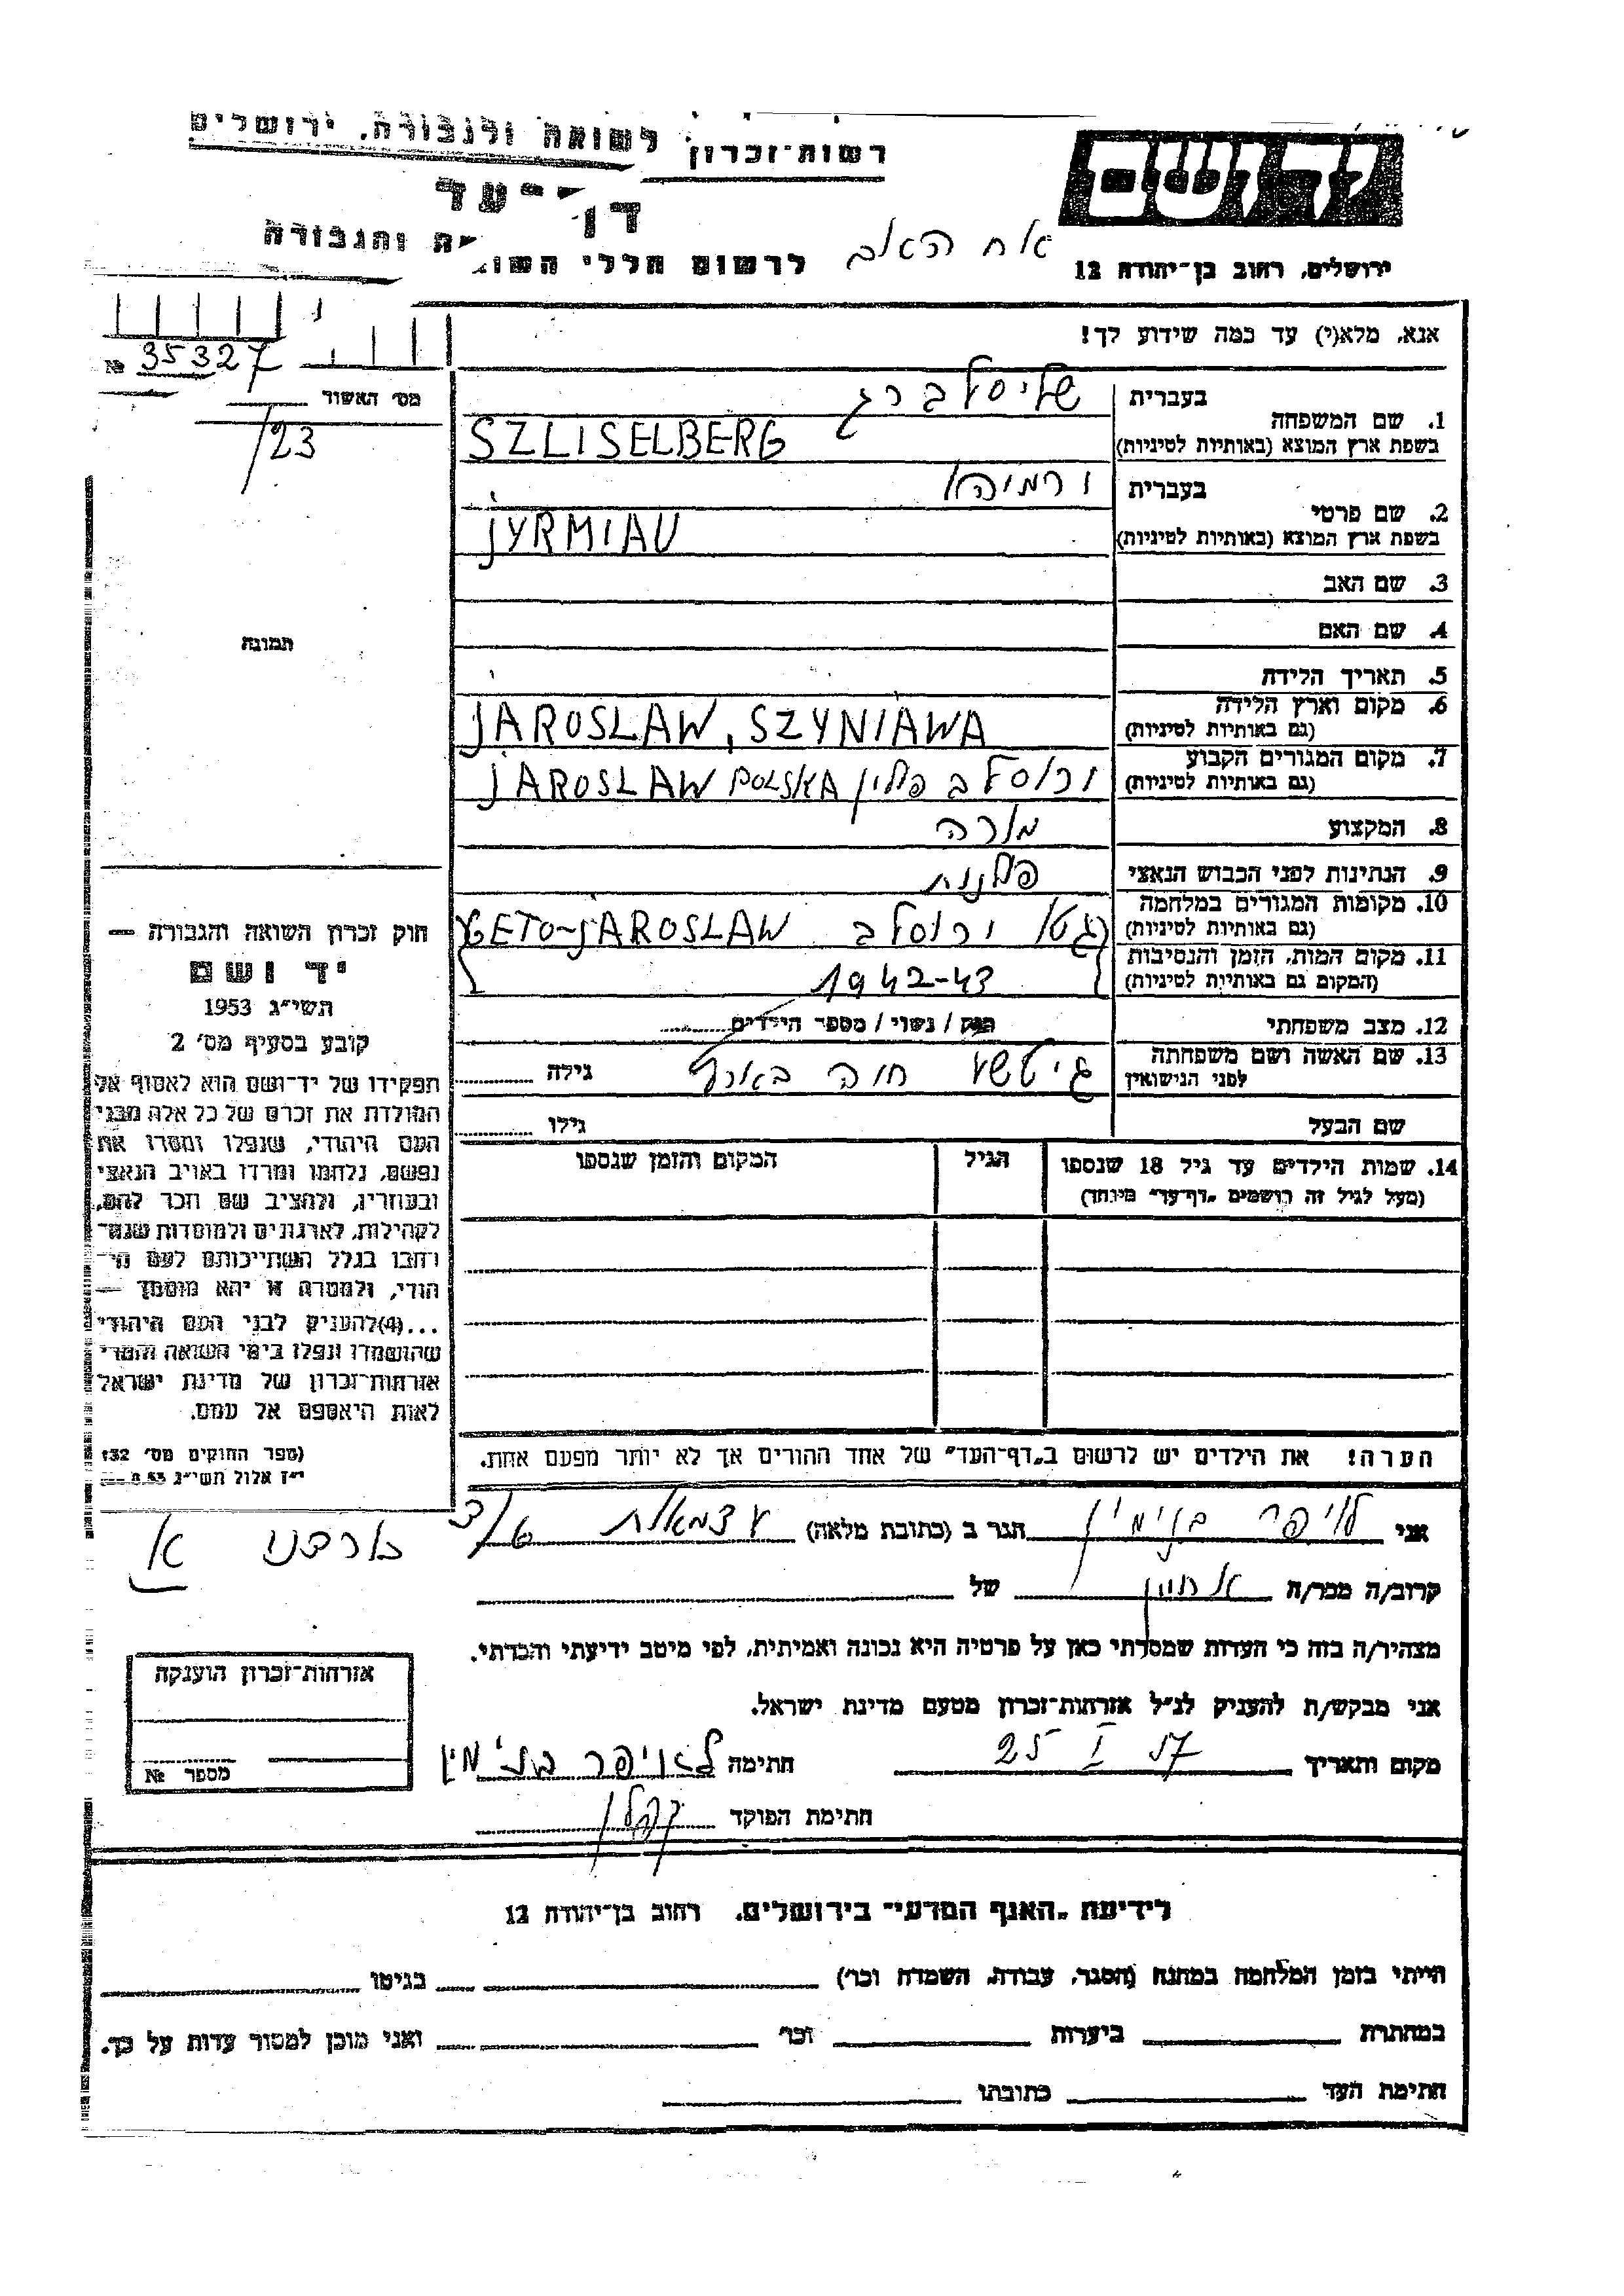 רשות־זכרון לשואה ולגבורה, ירושלים
דף־עד
לרשום חללי השואה והגבורה
ירושלים, רחוב בן־יהודה 12
אח האב
אנא, מלא(י) עד כמה שידוע לך!
№ 35327
/23
מס׳ האשור
תמונה
1. שם המשפחה
בעברית שליסלברג
בשפת ארץ המוצא (באותיות לטיניות) SZLISELBERG
2. שם פרטי
בעברית ירמיהו
בשפת ארץ המוצא (באותיות לטיניות) JYRMIAU
3. שם האב
4. שם האם
5. תאריך הלידה
6. מקום וארץ הלידה
(גם באותיות לטיניות) JAROSLAW, SZYNIAWA
7. מקום המגורים הקבוע
(גם באותיות לטיניות) ירוסלב פולין JAROSLAW POLSKA
8. המקצוע מורה
9. הנתינות לפני הכבוש הנאצי פולנית
10. מקומות המגורים במלחמה
(גם באותיות לטיניות) גטו ירוסלב GETO-JAROSLAW
11. מקום המות, הזמן והנסיבות
(המקום גם באותיות לטיניות) 1942-43
12. מצב משפחתי רווק / נשוי / מספר הילדים
13. שם האשה ושם משפחתה
לפני הנישואין חוה גילה
שם הבעל גילו
14. שמות הילדים עד גיל 18 שנספו
(מעל לגיל זה רושמים „דף־עד״ מיוחד)
הגיל
המקום והזמן שנספו
הערה! את הילדים יש לרשום ב„דף־העד״ של אחד ההורים אך לא יותר מפעם אחת.
חוק זכרון השואה והגבורה —
יד ושם
תשי״ג 1953
קובע בסעיף מס׳ 2
תפקידו של יד־ושם הוא לאסוף אל
המולדת את זכרם של כל אלה מבני
העם היהודי, שנפלו ומסרו את
נפשם, נלחמו ומרדו באויב הנאצי
ובעוזריו, ולהציב שם וזכר להם,
לקהילות, לארגונים ולמוסדות שנח־
רבו בגלל השתייכותם לעם הי־
הודי, ולמטרה זו יהא מוסמך —
...(4)להעניק לבני העם היהודי
שהושמדו ונפלו בימי השואה והמרי
אזרחות־זכרון של מדינת ישראל
לאות היאספם אל עמם.
(ספר החוקים מס׳ 132
י״ז אלול תשי״ג
אני בנימין הגר ב (כתובת מלאה) עצמאות
קרוב/ה מכר/ה אחיין של
מצהיר/ה בזה כי העדות שמסרתי כאן על פרטיה היא נכונה ואמיתית, לפי מיטב ידיעתי והכרתי.
אני מבקש/ת להעניק לנ״ל אזרחות־זכרון מטעם מדינת ישראל.
מקום ותאריך 25 I 57 חתימה לאויפר בנימין
חתימת הפוקד
אזרחות־זכרון הוענקה
מספר №
לידיעת „האגף המדעי״ בירושלים, רחוב בן־יהודה 12
הייתי בזמן המלחמה במחנה (הסגר, עבודה, השמדה וכו׳) בגיטו
במחתרת ביערות וכו׳ ואני מוכן למסור עדות על כך.
חתימת העד כתובתו